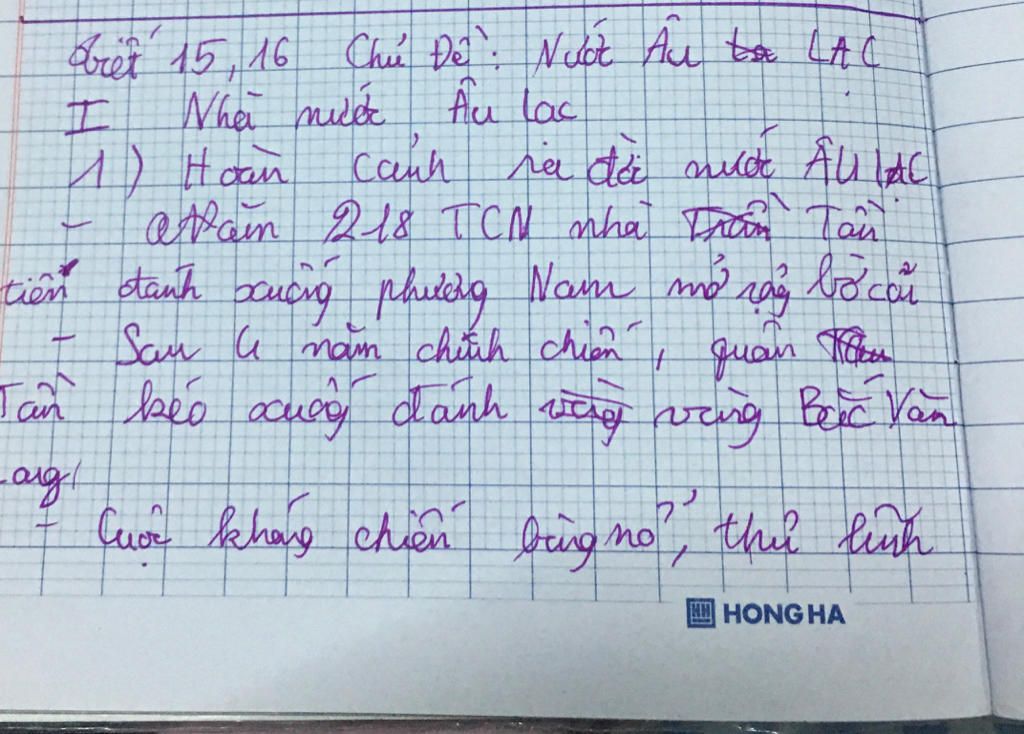 Tiết 15, 16 Chủ Đề: Nước Âu LẠC
I Nhà nước Âu lạc
1) Hoàn cảnh ra đời nước ÂU LẠC
- Năm 218 TCN nhà Tần
tiến đánh xuống phương Nam mở rộng bờ cõi
- Sau 4 năm chinh chiến, quân
Tần kéo xuống đánh vùng Bắc Văn
Lang
- Cuộc kháng chiến bùng nổ, thủ lĩnh
HONG HA